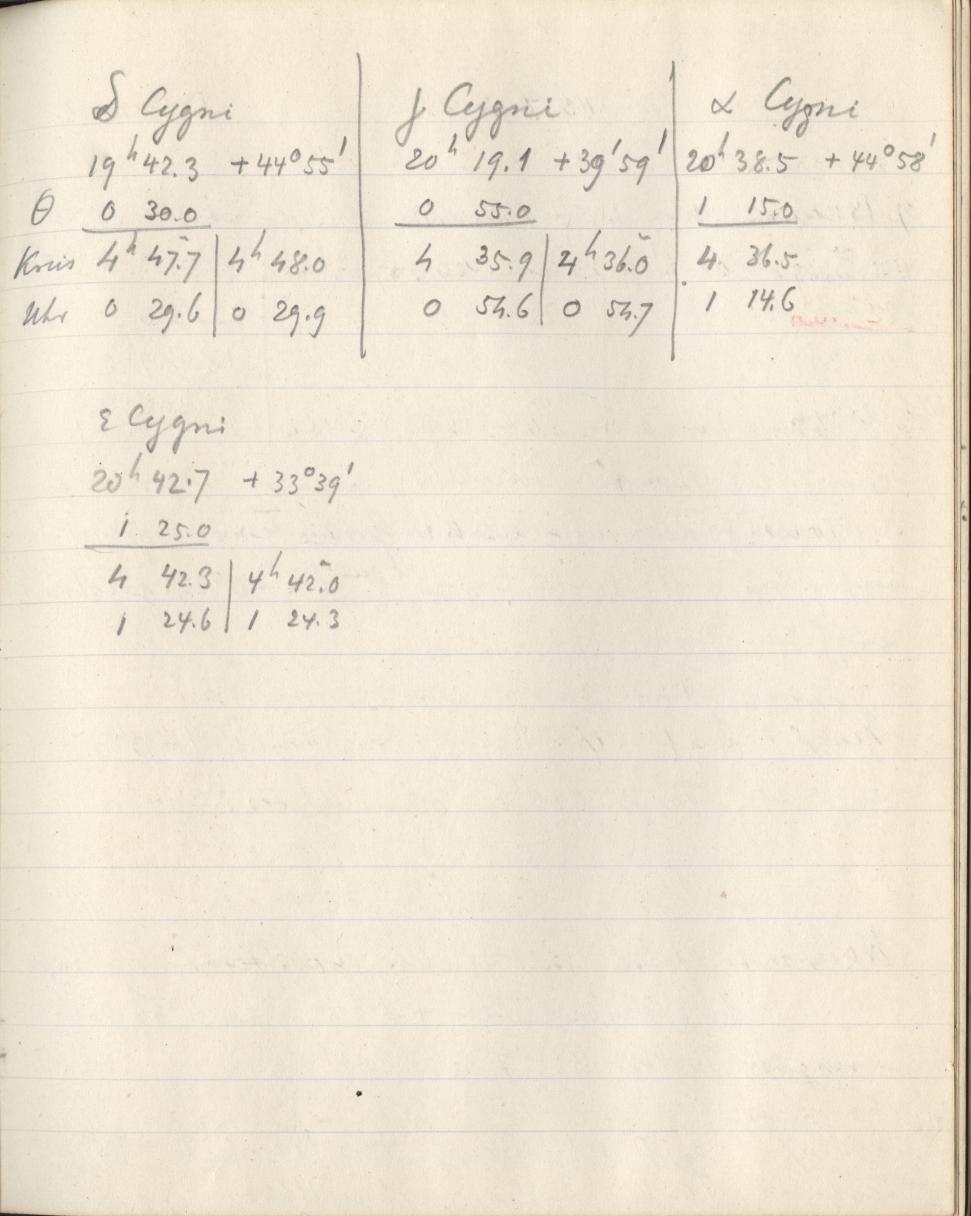 δ Cygni
19ʰ 42.3 +44° 55'
θ 0 30.0
Kreis 4ʰ 47.7 | 4ʰ 48.0
Uhr 0 29.6 | 0 29.9
γ Cygni
20ʰ 19.1 +39' 59'
0 55.0
4 35.9 | 4ʰ 36.0
0 54.6 | 0 54.7
α Cygni
20ʰ 38.5 +44° 58'
1 15.0
4 36.5
1 14.6
ε Cygni
20ʰ 42.7 +33° 39'
1 25.0
4 42.3 | 4ʰ 42.0
1 24.6 | 1 24.3